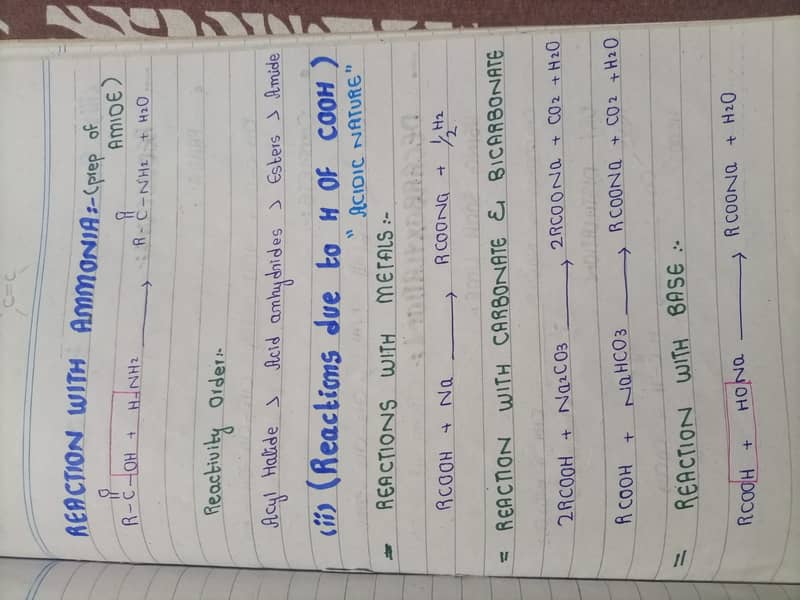 REACTION WITH AMMONIA:-(prep of AMIDE)
O O
R-C-OH + H-NH2 ⟶ R-C-NH2 + H2O
Reactivity Order:-
Acyl Halide > Acid anhydrides > Esters > Amide
(ii) (Reactions due to H OF COOH)
"ACIDIC NATURE"
= REACTIONS WITH METALS:-
RCOOH + Na ⟶ RCOONa + 1/2 H2
= REACTION WITH CARBONATE & BICARBONATE
2RCOOH + Na2CO3 ⟶ 2RCOONa + CO2 + H2O
RCOOH + NaHCO3 ⟶ RCOONa + CO2 + H2O
= REACTION WITH BASE :-
RCOOH + HONa ⟶ RCOONa + H2O